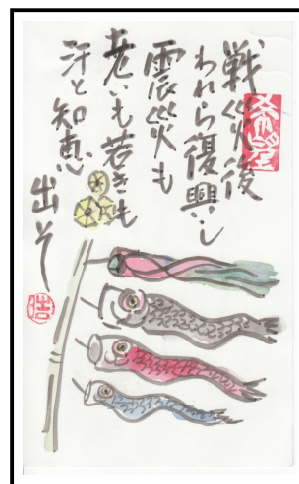 希望
戦災後
われら復興し
震災も
老いも若きも
汗と知恵
出そー